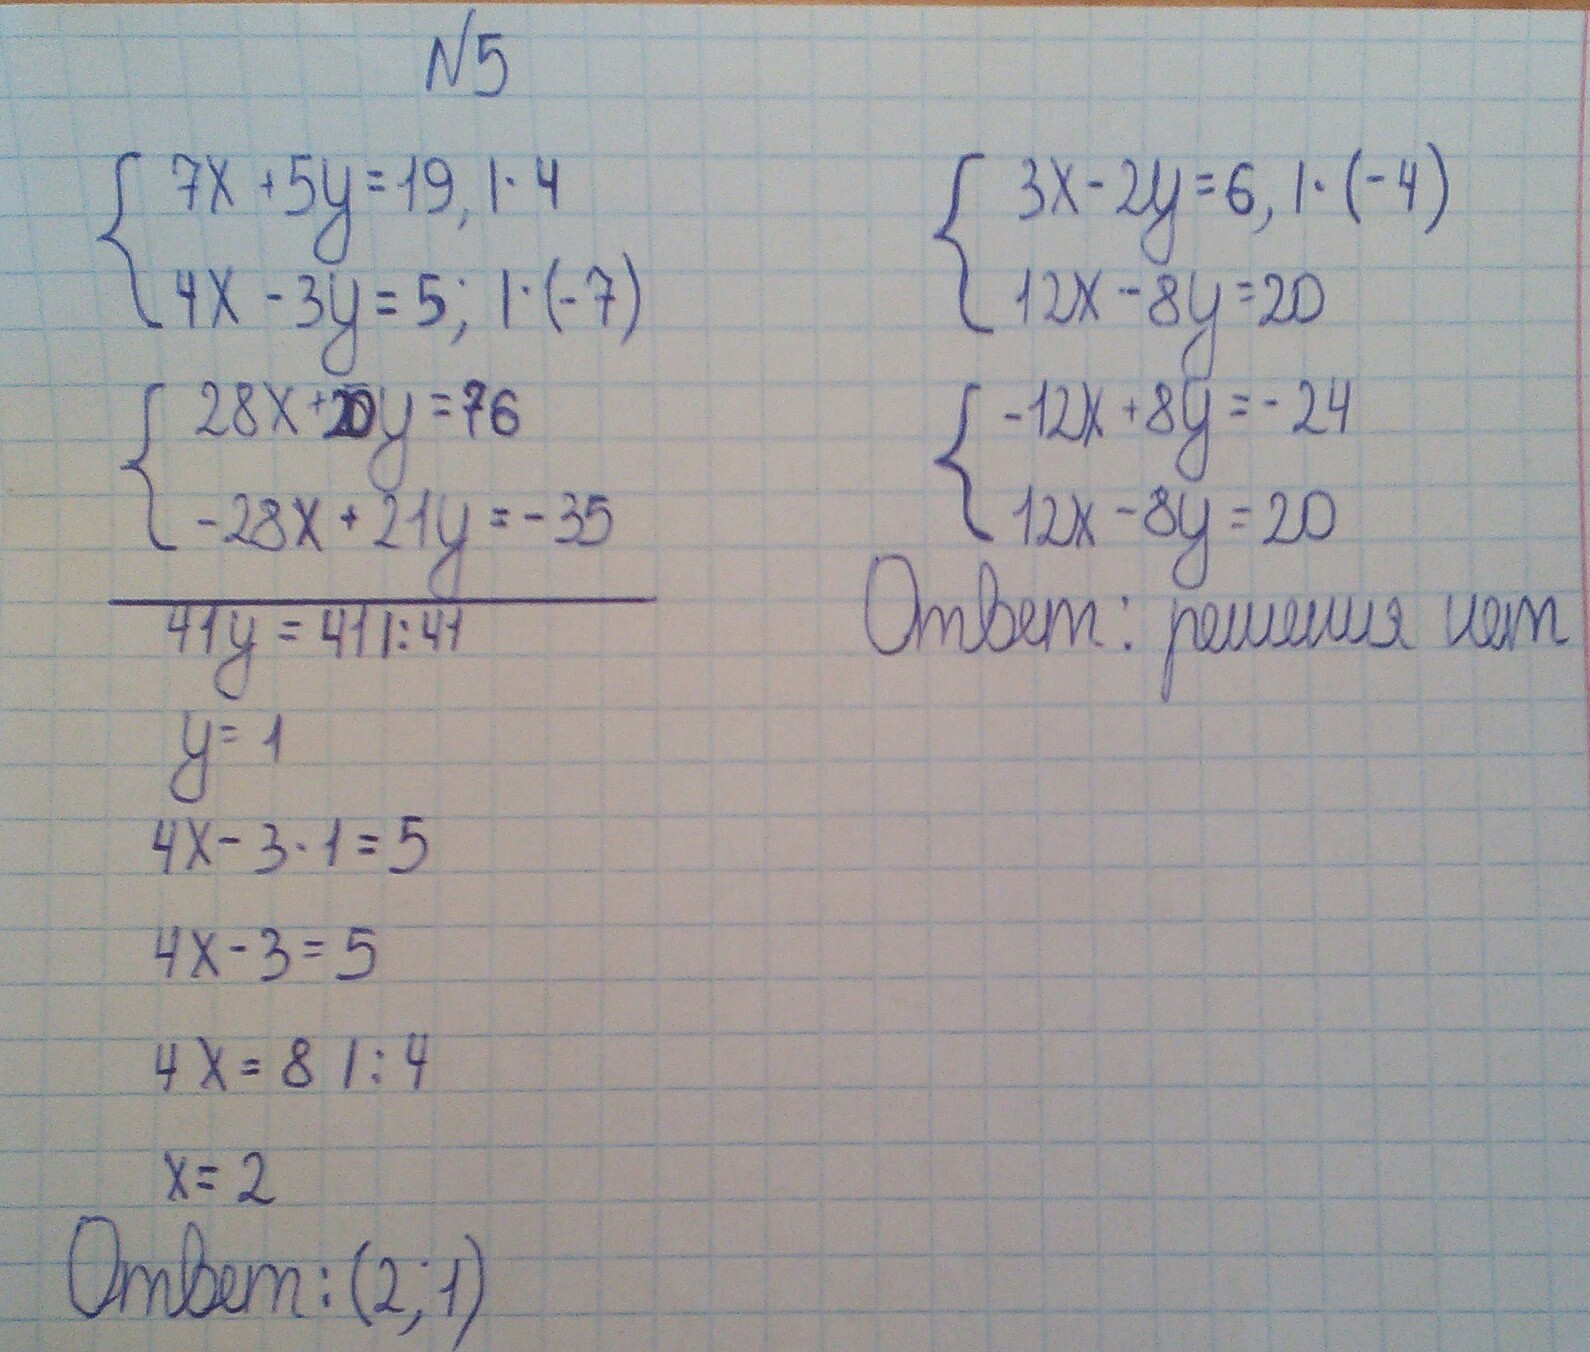 N5
7x+5y=19, |·4
4x-3y=5; |·(-7)
28x+20y=76
-28x+21y=-35
41y=41 |:41
y=1
4x-3·1=5
4x-3=5
4x=8 |:4
x=2
Ответ: (2;1)
3x-2y=6, |·(-4)
12x-8y=20
-12x+8y=-24
12x-8y=20
Ответ: решения нет